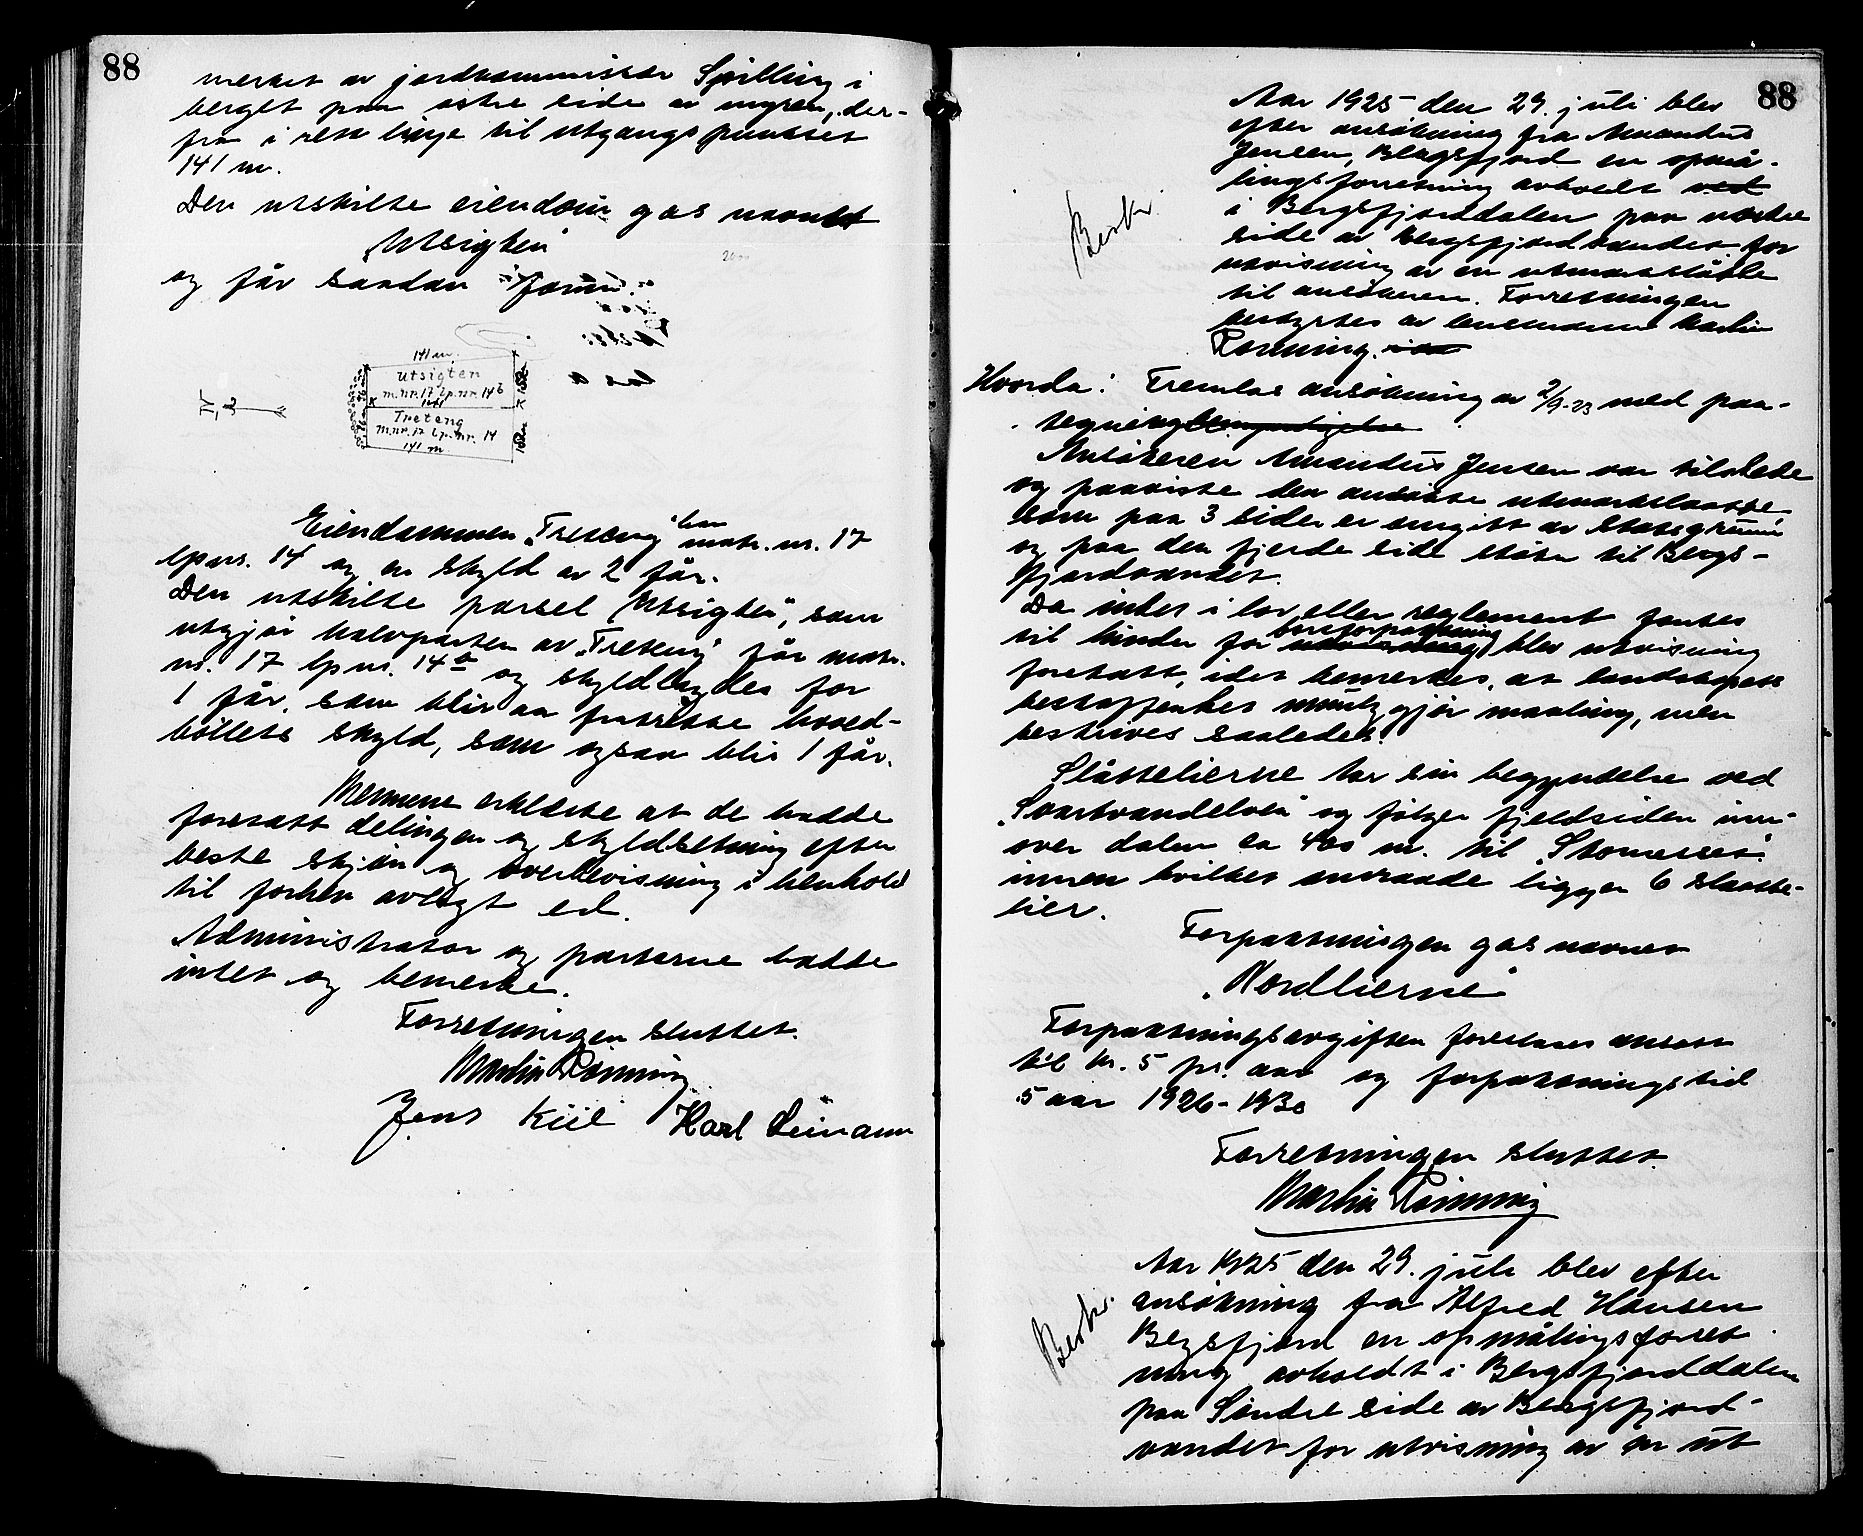 88
merket av jordkommissær Spilling i
berget paa östre side av myren, der-
fra i rett linje til utgangspunktet
141 m.
Den utskilte eiendom gas navnet
„Utsigten"
og får saadan form:
141 m.
Utsigten
m.nr. 17 lp.nr. 14 b
141
Treteng
m.nr. 17 lp.nr. 14
141 m.
N
Eiendommen „Treteng" har matr. nr. 17
lpnr. 14 og en skyld av 2 får.
Den utskilte parsel „Utsigten", som
utgjör halvparten av „Treteng" får matr.
nr. 17 lpnr. 14 b og skyldlægdes for
1 får, som blir aa fratrekke hoved-
böllets skyld, som ogsaa blir 1 får.
Mennene erklærte at de hadde
foretatt delingen og skyldsetning efter
beste skjön og overbevisning i henhold
til forhen avlagt ed.
Administrator og parterne hadde
intet og bemerke.
Forretningen sluttet.
Martin Rönning
Jens Kiil Karl Leinann
88
Aar 1925 den 29. juli blev
efter ansökning fra Amandus
Jensen, Bergsfjord en opmå-
lingsforretning avholdt ved
i Bergsfjorddalen paa nordre
side av Bergsfjordvandet for
utvisning av en utmarkslåtte
til ansökeren. Forretningen
bestyrtes av lensmann Martin
Rönning.
Beskr.
Hvorda: Fremlas ansökning av 2/9-23 med paa-
tegning
Ansökeren Amandus Jensen var tilstede
og paaviste den ansökte utmarkslaatte
som paa 3 sider er omgitt av statsgrunn
og paa den fjerde side stöter til Bergs-
fjordvandet.
Da intet i lov eller reglement fantes
til hinder for bortforpaktning blev utvisning
foretatt, idet bemerkes, at landskapets
beskaffenhet umuliggjör maaling, men
beskrives saaledes:
Slåttelierne tar sin begyndelse ved
„Svartvandelven" og fölger fjeldsiden inn-
over dalen ca 400 m. til „Storneset"
innen hvilket omraade ligger 6 slaatte-
lier.
Forpaktningen gas navnet
„Nordlierne"
Forpaktningsavgiften foreslaaes ansatt
til kr. 5 pr. aar og forpaktningstid
5 aar 1926-1930
Forretningen sluttet.
Martin Rönning
Beskr.
Aar 1925 den 29. juli blev efter
ansökning fra Alfred Hansen
Bergsfjord en opmålingsforret-
ning avholdt i Bergsfjorddalen
paa Söndre side av Bergsfjord-
vandet for utvisning av en ut